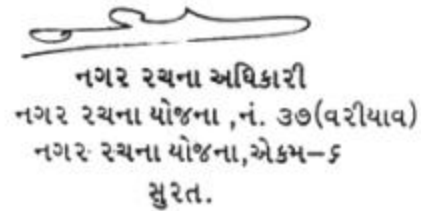 નગર રચના અધિકારી
નગર રચના યોજના ,નં. ૩૭(વરીયાવ)
નગર રચના યોજના,એકમ-૬
સુરત.